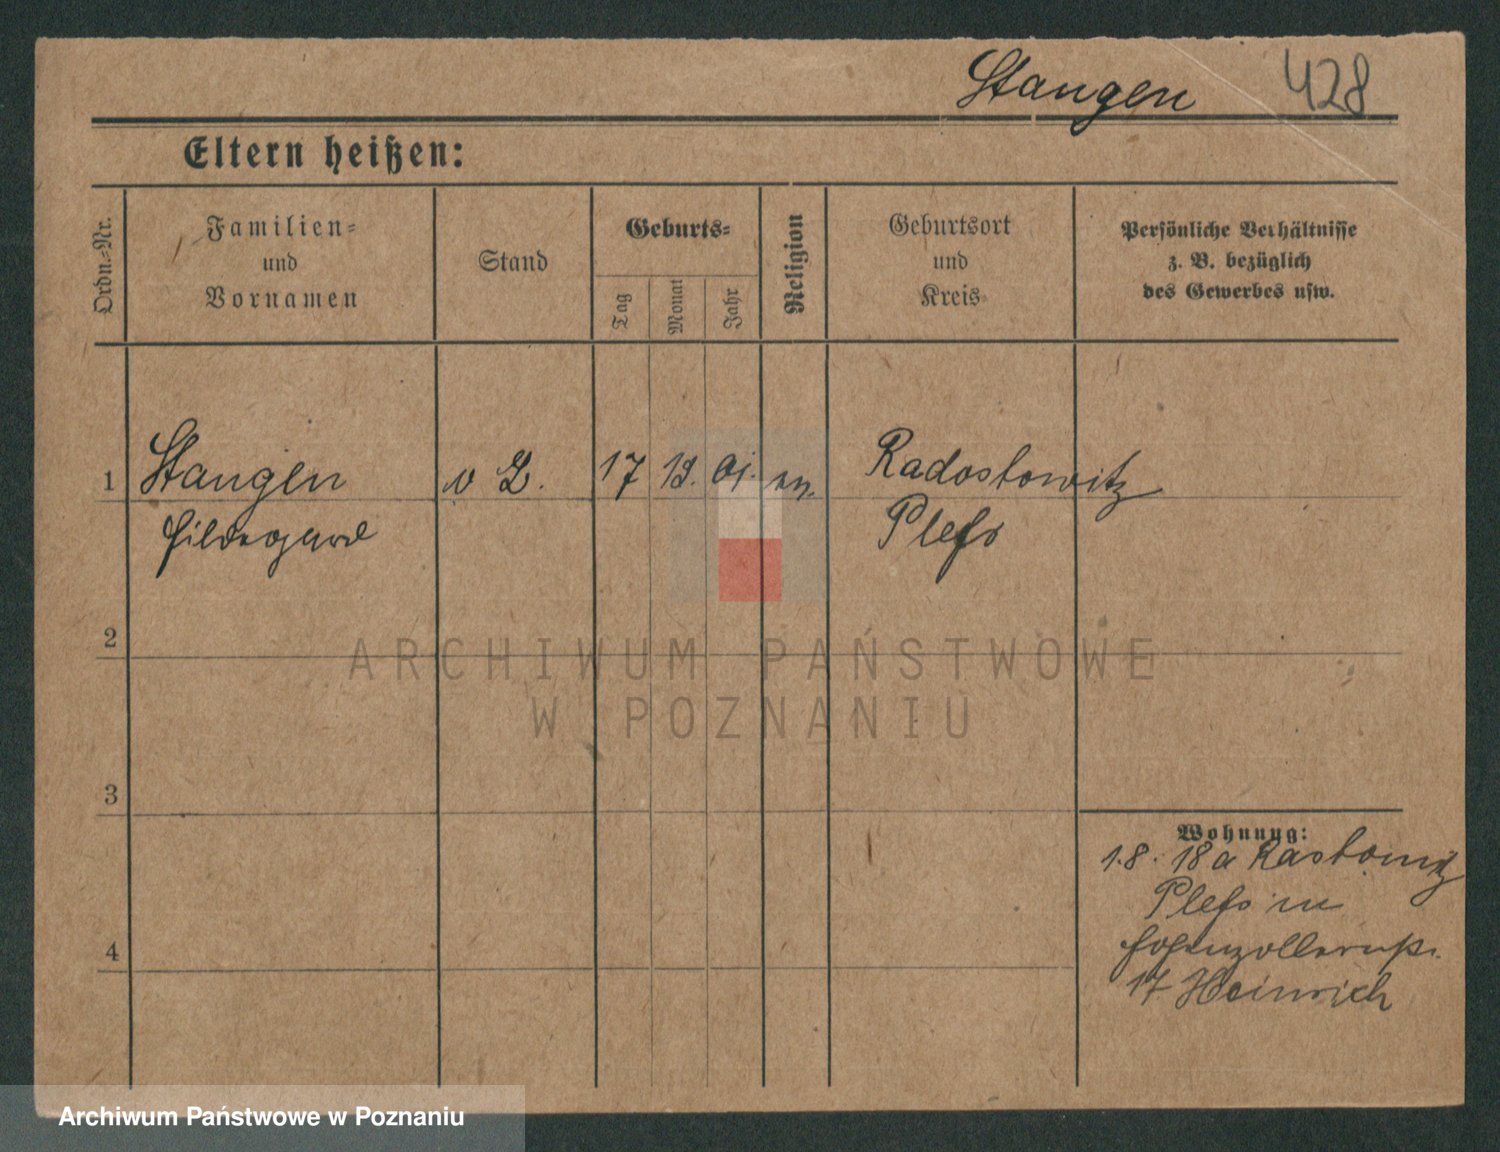 Stangen 428
Eltern heißen:
Ordn.-Nr.
Familien-
und
Vornamen
Stand
Geburts-
Tag
Monat
Jahr
Religion
Geburtsort
und
Kreis
Persönliche Verhältnisse
z. B. bezüglich
des Gewerbes usw.
1 Stangen o L. 17 12. 01. ev. Radostowitz
Hildegard Pleß
2
3
4
Wohnung:
1.8. 18 a Rastowitz
Pleß in
Hohenzollernstr.
17 Heinrich
ARCHIWUM PAŃSTWOWE
W POZNANIU
Archiwum Państwowe w Poznaniu